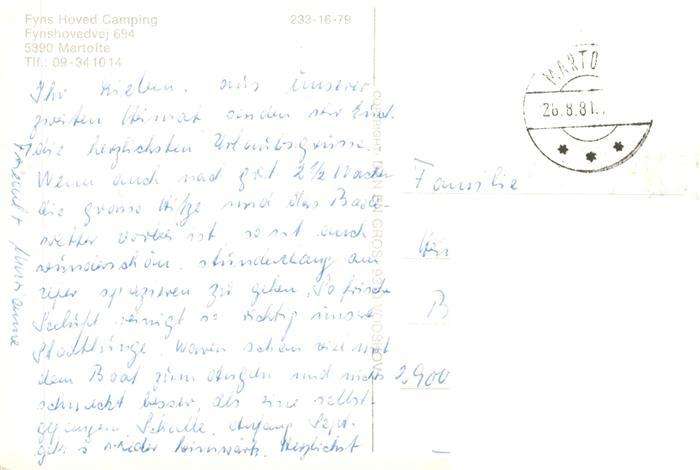 Fyns Hoved Camping 233-16-79
Fynshovedvej 694
5390 Martofte
Tlf.: 09-341014
Ihr Lieben, aus unserer
zweiten Heimat senden wir Euch
die herzlichsten Urlaubsgrüsse.
Wenn auch nach gut 2 1/2 Wochen
die grosse Hitze und das Bade-
wetter vorbei ist so ist auch
wunderschön, stundenlang am
Ufer spazieren zu gehen. So frische
Seeluft reinigt so richtig unsere
Stadtlunge. Waren schon viel mit
dem Boot zum Angeln und nichts
schmeckt besser, als eine selbst-
gefangene Scholle. Anfang Sept.
geht's wieder heimwärts. Herzlichst
Marianne
MARTO
26.8.81.
Familie
2900
COPYRIGHT